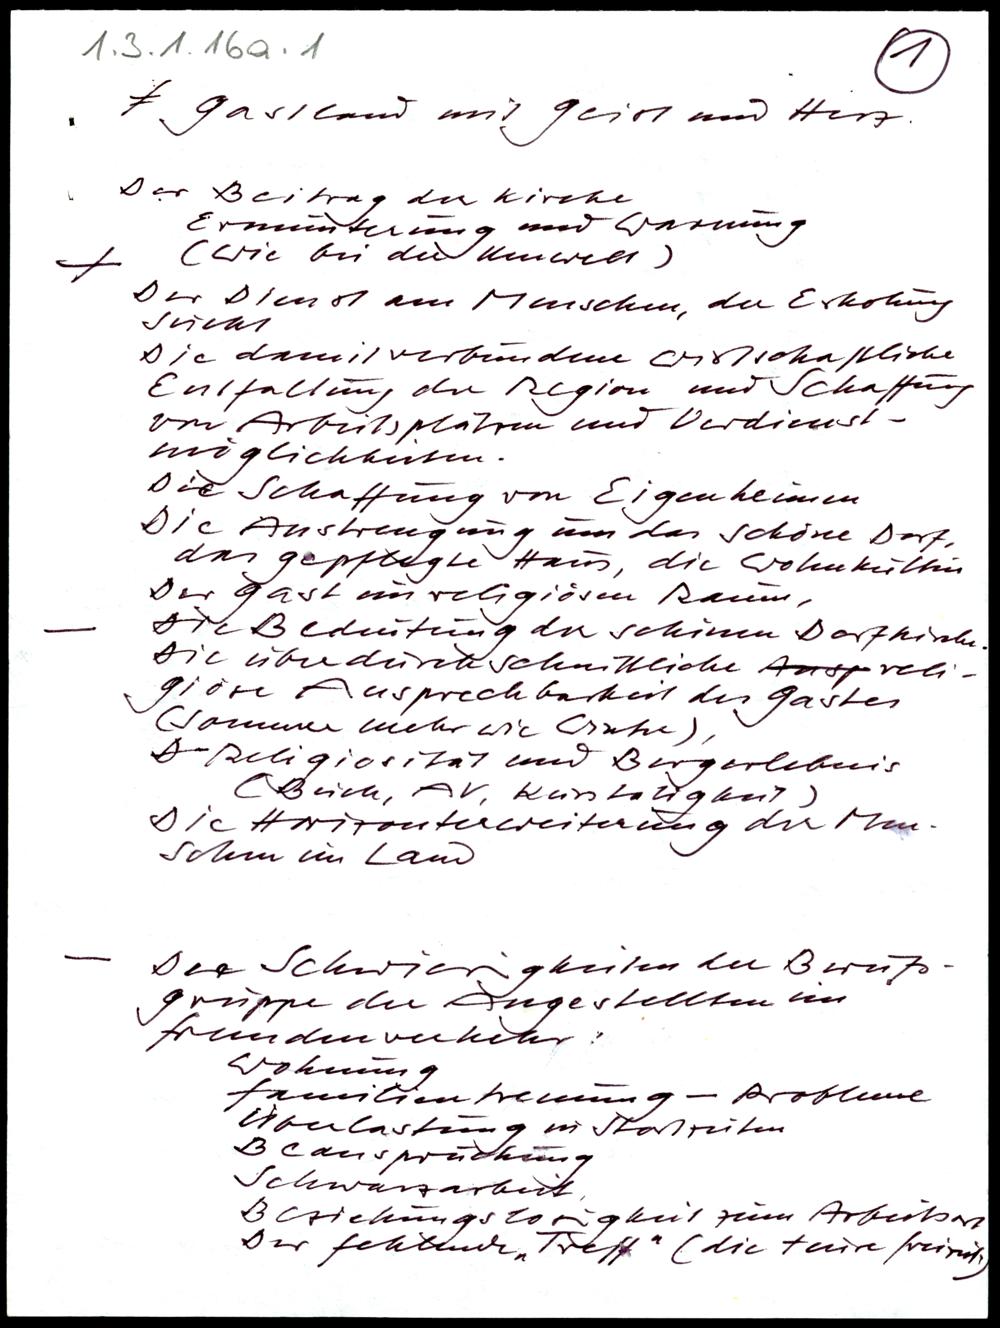 1.3.1.16a.1
1
Gastland mit Geist und Herz.
Der Beitrag der Kirche
Ermunterung und Warnung
(wie bei der Umwelt)
Der Dienst am Menschen, der Erholung
sucht
Die damit verbundene wirtschaftliche
Entfaltung der Region und Schaffung
von Arbeitsplätzen und Verdienst-
möglichkeiten.
Die Schaffung von Eigenheimen
Die Anstrengung um das schöne Dorf,
das gepflegte Haus, die Wohnkultur
Der Gast im religiösen Raum,
Die Bedeutung der schönen Dorfkirche.
Die überdurchschnittliche Ausp reli-
giöse Ansprechbarkeit des Gastes
(Sommer mehr wie Winter),
D Religiosität und Bergerlebnis
(Buch, AV, Kurstätigkeit)
Die Horizonterweiterung der Men-
schen im Land
Die Schwierigkeiten der Berufs-
gruppe der Angestellten im
Fremdenverkehr:
Wohnung
Familientrennung - Probleme
Überlastung in Stoßzeiten
Beanspruchung
Schwarzarbeit,
Beziehungslosigkeit zum Arbeitsort
Der fehlende „Treff" (die teure Freizeit)